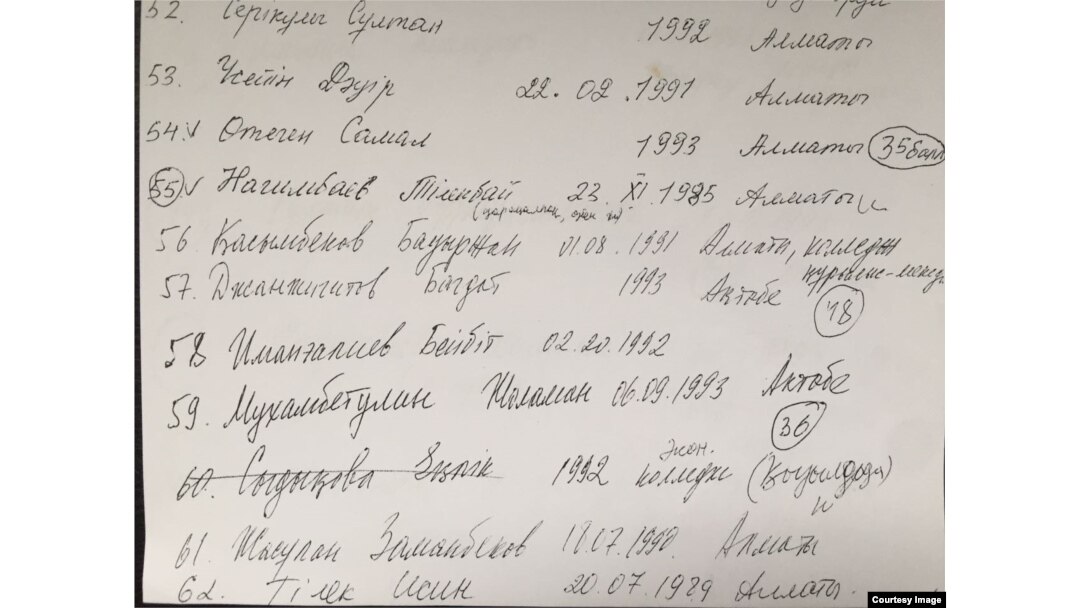 52. Серікұлы Султан 1992 Алматы
53. Усейін Дәуір 22.02.1991 Алматы
54.v Отеген Самал 1993 Алматы 35балл
55v Нагимбаев Тілекбай 23.XI.1985 Алматы
56. Касымбеков Бауыржан 01.08.1991 Алматы, колледж
57. Джанжигитов Багдат 1993 Актобе
18
58 Иманғалиев Бейбіт 02.20.1992
59. Мухамбетулин Жоламан 06.09.1993 Актобе
36
Экон.
60. Сыдықова 1992 колледж (Кызылорда)
61. Жасулан Заманбеков 18.07.1990. Алматы
62. Тілек Исин 20.07.1989 Алматы.
Courtesy Image